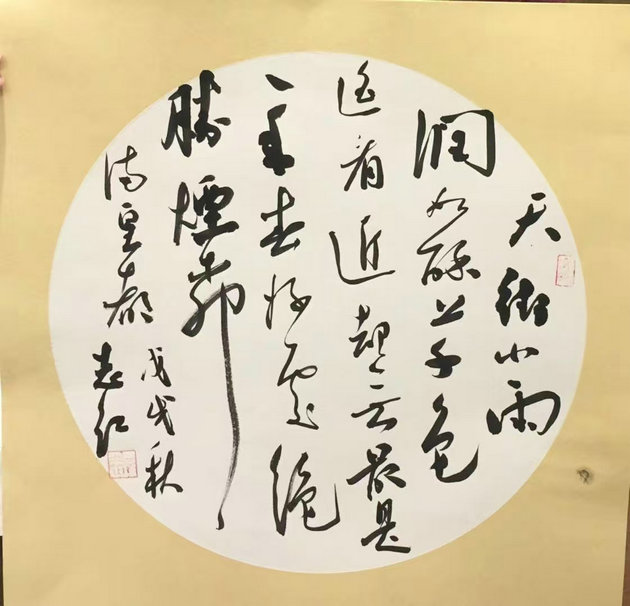 天街小雨
润如酥草色
遥看近却无最是
一年春好處绝
勝煙柳
满皇都
戊戌秋
志红